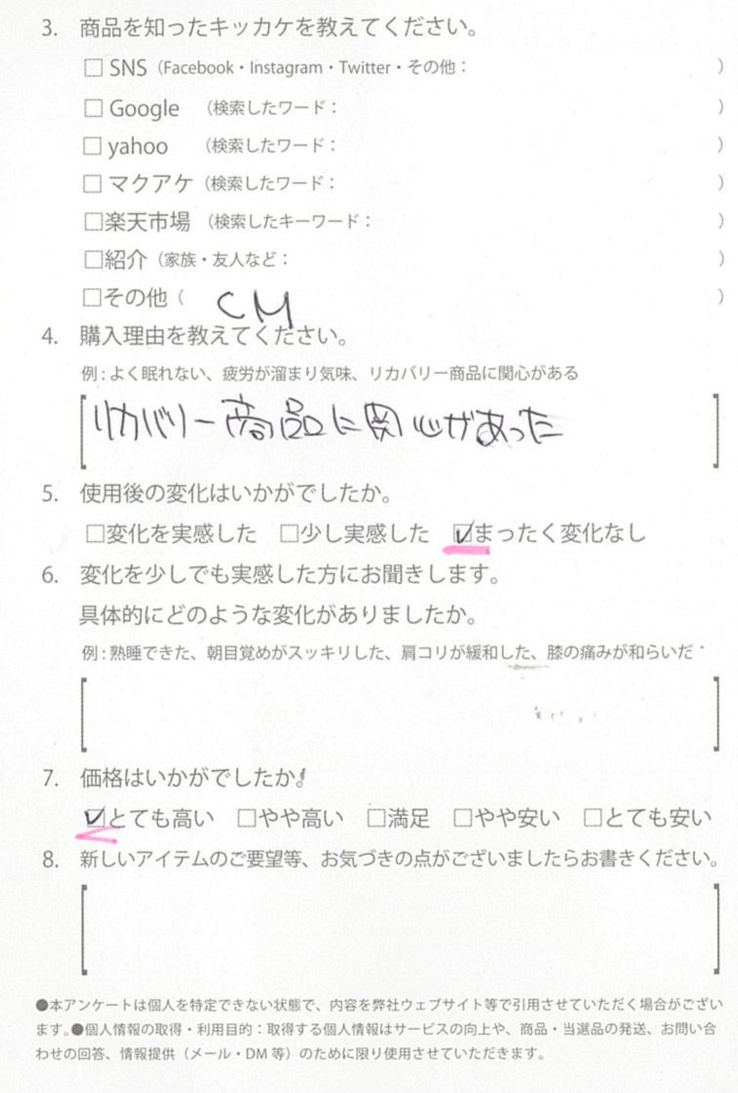 3. 商品を知ったキッカケを教えてください。
□ SNS（Facebook・Instagram・Twitter・その他： ）
□ Google （検索したワード： ）
□ yahoo （検索したワード： ）
□ マクアケ（検索したワード： ）
□楽天市場（検索したキーワード： ）
□紹介（家族・友人など： ）
□その他（ CM ）
4. 購入理由を教えてください。
例：よく眠れない、疲労が溜まり気味、リカバリー商品に関心がある
リカバリー商品に関心があった
5. 使用後の変化はいかがでしたか。
□変化を実感した □少し実感した ☑まったく変化なし
6. 変化を少しでも実感した方にお聞きします。
具体的にどのような変化がありましたか。
例：熟睡できた、朝目覚めがスッキリした、肩コリが緩和した、膝の痛みが和らいだ
7. 価格はいかがでしたか。
☑とても高い □やや高い □満足 □やや安い □とても安い
8. 新しいアイテムのご要望等、お気づきの点がございましたらお書きください。
●本アンケートは個人を特定できない状態で、内容を弊社ウェブサイト等で引用させていただく場合がござい
ます。●個人情報の取得・利用目的：取得する個人情報はサービスの向上や、商品・当選品の発送、お問い合
わせの回答、情報提供（メール・DM 等）のために限り使用させていただきます。